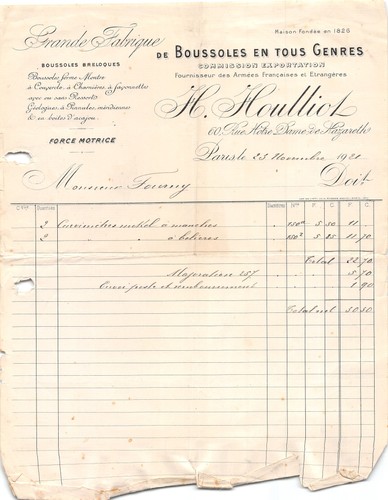 Maison Fondée en 1826
Grande Fabrique
DE BOUSSOLES EN TOUS GENRES
COMMISSION EXPORTATION
Fournisseur des Armées Françaises et Etrangères
BOUSSOLES BRELOQUES
Boussoles forme Montre
à Couvercle, à Charnière, à Savonnette
avec ou sans Ressorts
Géologues, à Pinnules, méridiennes
& en boites d'acajou.
H. Houlliot
60, Rue Notre Dame de Nazareth
FORCE MOTRICE
Paris le 25 Novembre 1921
Monsieur Fourny
Doit
F. C. F. C.
2 Curvimètres nickel à manches 5 50 11 "
2 " " à bélières 5 85 11 70
Total 22 70
Majoration 25% 5 70
port et remboursement 1 90
Total net 30 30